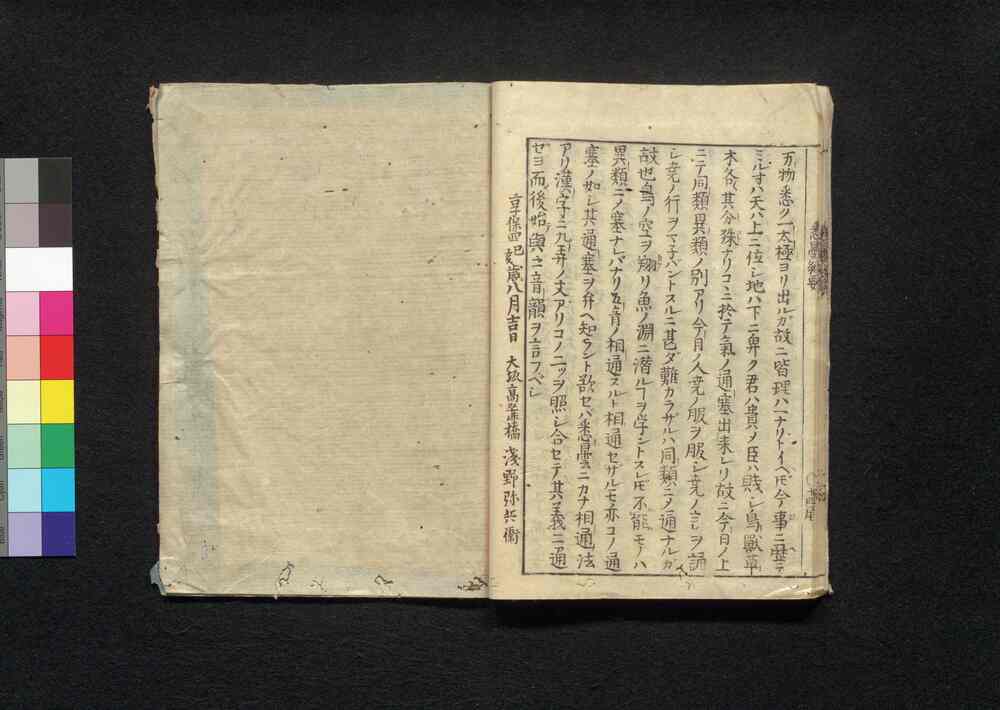 万物悉ク一太極ヨリ出ルガ故ニ皆理ハ一ナリトイヘ𪜈今事ニ歴テ
ミルオハ天ハ上ニ位シ地ハ下ニ卑ク君ハ貴ハメ臣ハ賎シ鳥獣草
木各其分殊ナリコヽニ於テ氣ノ通塞出来レリ故ニ今日ノ上
ニテ同類異類ノ別アリ今日ノ人堯ノ服ヲ服シ堯ノ言ヲ誦
シ堯ノ行ヲマネバントスルニ甚ダ難カラザルハ同類ニメ通ナルガ
故也鳥ノ空ヲ翔リ魚ノ淵ニ潜ルヿヲ学ントスレ𪜈不能モノハ
異類ニメ塞ナレバナリ五音ノ相通スルト相通セザルモ亦コノ通
塞ノ如シ其通塞ヲ弁ヘ知ラント欲セバ悉曇ニカナ相通法
アリ漢字ニ九弄ノ丈アリコノ二ツヲ照シ合セテ其義ニ通
セヨ而後始與ニ音韻ヲ言フベシ
享保四己亥歳八月吉日 大坂高麗橋 浅野弥兵衛